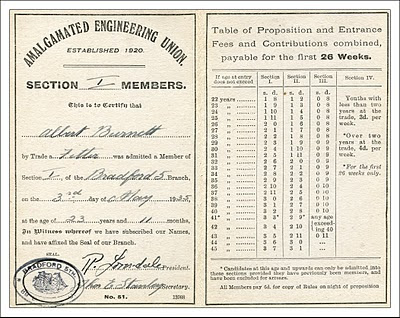 AMALGAMATED ENGINEERING UNION.
ESTABLISHED 1920.
SECTION I MEMBERS.
This is to Certify that
Albert Burnett
by Trade a Fitter was admitted a Member of
Section I of the Bradford 5 Branch,
on the 3rd day of May 1935
at the age of 23 years and 11 months,
In Witness whereof we have subscribed our Names,
and have affixed the Seal of our Branch.
SEAL.
R. Lonsdale President.
Stanley Secretary.
BRADFORD 5TH
No. 51.
Table of Proposition and Entrance
Fees and Contributions combined,
payable for the first 26 Weeks.
If age at entry does not exceed
Section I.
Section II.
Section III.
Section IV.
s. d. s. d. s. d.
22 years 1 8 1 2 0 8
23 1 9 1 3 0 8
24 1 10 1 4 0 8
25 1 11 1 5 0 8
26 2 0 1 6 0 8
27 2 1 1 7 0 8
28 2 2 1 8 0 9
29 2 3 1 9 0 9
30 2 4 1 10 0 9
31 2 5 1 11 0 9
32
33
34
35
36 2 10 2 4 0 10
37 2 11 2 5 0 10
38 3 0 2 6 0 10
39 3 1 2 7 0 10
40 3 2 2 8 0 10
41* 3 3 2 9* any age
42 3 4 2 10 exceeding 40
43 3 5 2 11 0 11
44 3 6 3 0
45 3 7
Youths with
less than two
years at the
trade, 3d. per
week.
*Over two
years at the
trade, 4d. per
week.
*For the first
26 weeks only.
*Candidates at this age and upwards can only be admitted into
these sections provided they have previously been members, and
have been excluded for arrears.
All Members pay 6d. for copy of Rules on night of proposition